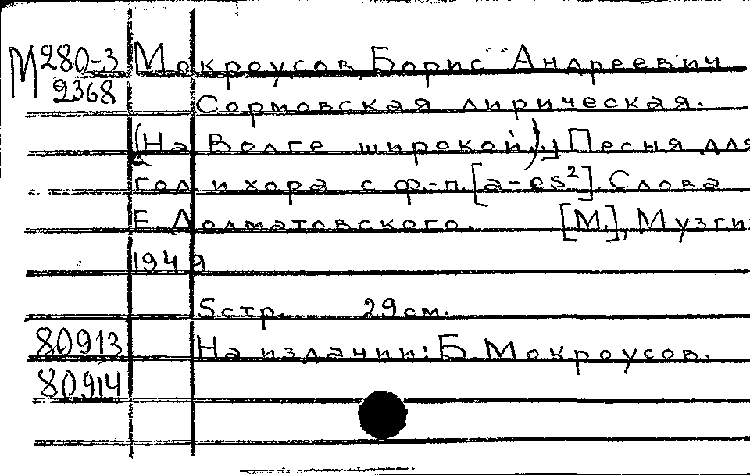 М280-3 Мокроусов, Борис Андреевич
2368 Сормовская лирическая.
(На Волге широкой.) Песня для
гол. и хора с ф.-п. [a-es²]. Слова
Е. Долматовского. [М.], Музгиз
1949
5 стр. 29 см.
80913 На издании: Б. Мокроусов.
80914